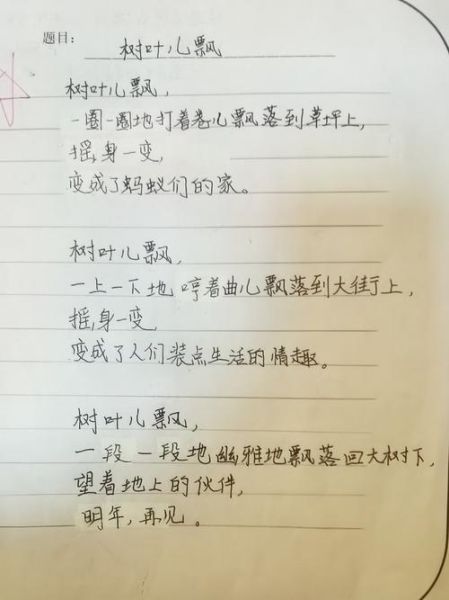 题目：
树叶儿飘
树叶儿飘，
一圈一圈地打着卷儿飘落到草坪上，
摇身一变，
变成了蚂蚁们的家。
树叶儿飘，
一上一下地哼着曲儿飘落到大街上，
摇身一变，
变成了人们装点生活的情趣。
树叶儿飘，
一段一段地幽雅地飘落回大树下，
望着地上的伙伴，
明年，再见。